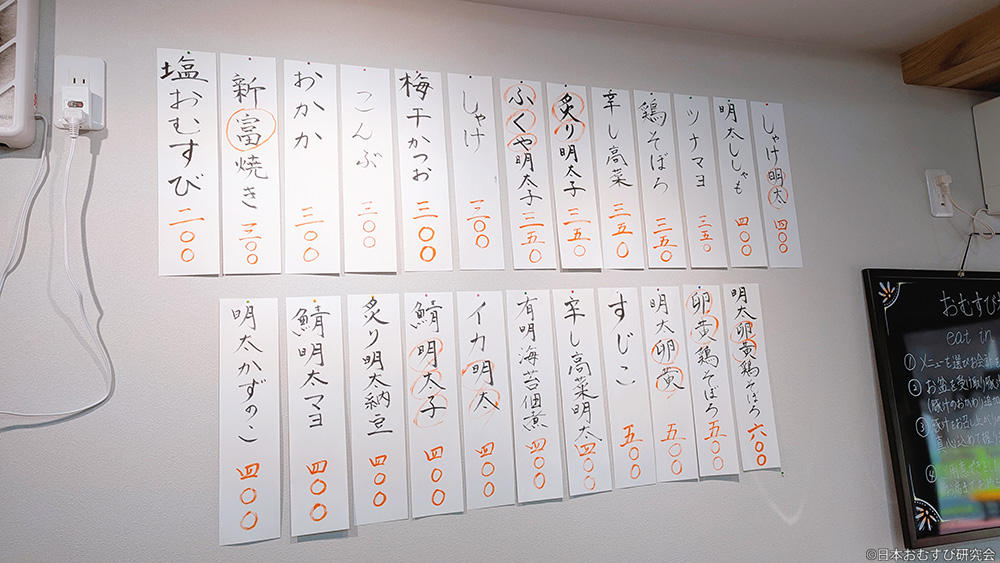 しゃけ明太 四〇〇
明太ししゃも 四〇〇
ツナマヨ 三五〇
鶏そぼろ 三五〇
辛し高菜 三五〇
炙り明太子 三五〇
ふくや明太子 三五〇
しゃけ 三〇〇
梅干かつお 三〇〇
こんぶ 三〇〇
おかか 三〇〇
新富焼き 三〇〇
塩おむすび 二〇〇
明太卵黄鶏そぼろ 六〇〇
卵黄鶏そぼろ 五〇〇
明太卵黄 五〇〇
すじこ 五〇〇
辛し高菜明太 四〇〇
有明海苔佃煮 四〇〇
イカ明太 四〇〇
鯖明太子 四〇〇
炙り明太納豆 四〇〇
鯖明太マヨ 四〇〇
明太かずのこ 四〇〇
おむすび
eat in
① メニューを選びお会計
② お盆を受け取り
③
④
©日本おむすび研究会